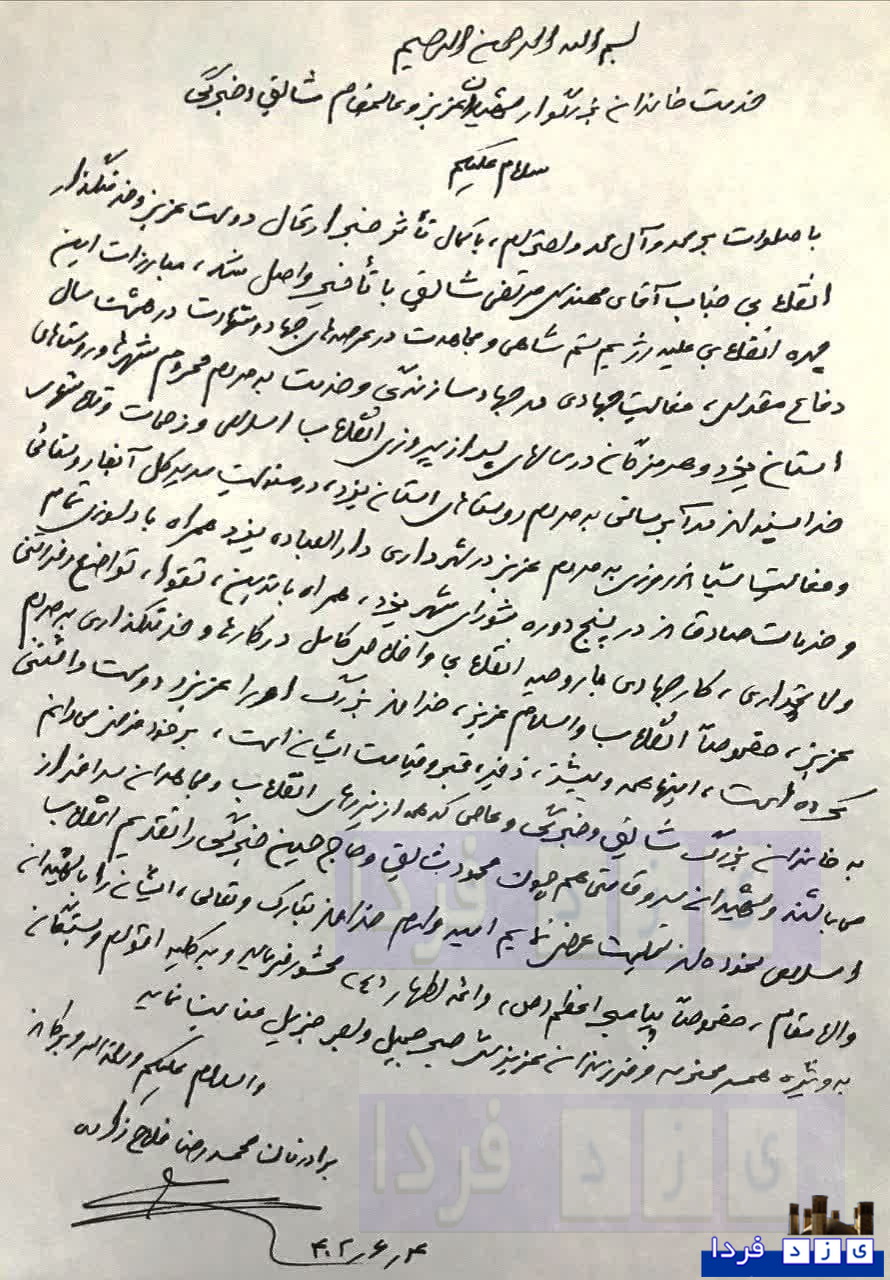 بسم الله الرحمن الرحیم
خدمت خاندان بزرگوار شهیدان عزیز و عالیمقام شایق و خبرنگی
سلام علیکم
با صلوات بر محمد و آل محمد و احترام، با کمال تأثر خبر ارتحال دوست عزیز و خدمتگذار
انقلابی جناب آقای مهندس مرتضی شایق با تأخیر واصل شد، مبارزات این
چهره انقلابی علیه رژیم ستم شاهی و مجاهدت در عرصه‌های جهاد و شهادت در هشت سال
دفاع مقدس، فعالیت جهادی در جهاد سازندگی و خدمت به مردم محروم شهرها و روستاهای
استان یزد و هرمزگان در سالهای پس از پیروزی انقلاب اسلامی و زحمات و تلاشهای
خداپسندانه در آبرسانی به مردم روستاهای استان یزد، در مسئولیت مدیرکل آبفا روستائی
و فعالیت شبانه‌روزی به مردم عزیز در شهرداری دارالعباده یزد همراه با دلسوزی تمام
و خدمات صادقانه در پنج دوره شورای شهر یزد، همراه با تدین، تقوا، تواضع و فروتنی
ولایتمداری، کار جهادی با روحیه انقلابی و اخلاص کامل در کارها و خدمتگذاری به مردم
عزیز، خصوصاً انقلاب و اسلام عزیز، خداوند بزرگ او را عزیز و دوست داشتنی
کرده است، اینها همه و بیشتر، ذخیره قبر و قیامت ایشان است، بر خود فرض می‌دانم
به خاندان بزرگ شایق و و عاصی که همه از نیروهای انقلاب و مجاهدان سرافراز
می‌باشند و شهیدان سروقامتی همچون محمود شایق و حاج حسین را تقدیم انقلاب
اسلامی نموده‌اند تسلیت عرض نمایم امیدوارم خداوند تبارک و تعالی، ایشان را با شهیدان
والامقام، خصوصاً پیامبر اعظم (ص) و ائمه اطهار (ع) محشور فرماید و به کلیه اقوام و بستگان
به ویژه همسر محترمه و فرزندان عزیزش صبر جمیل و اجر جزیل عنایت نماید
والسلام علیکم و رحمة الله و برکاته
برادرتان محمدرضا فلاح زاده
۴۰۲٫۶٫۴
یزد فردا
یزد فردا
یزد فردا